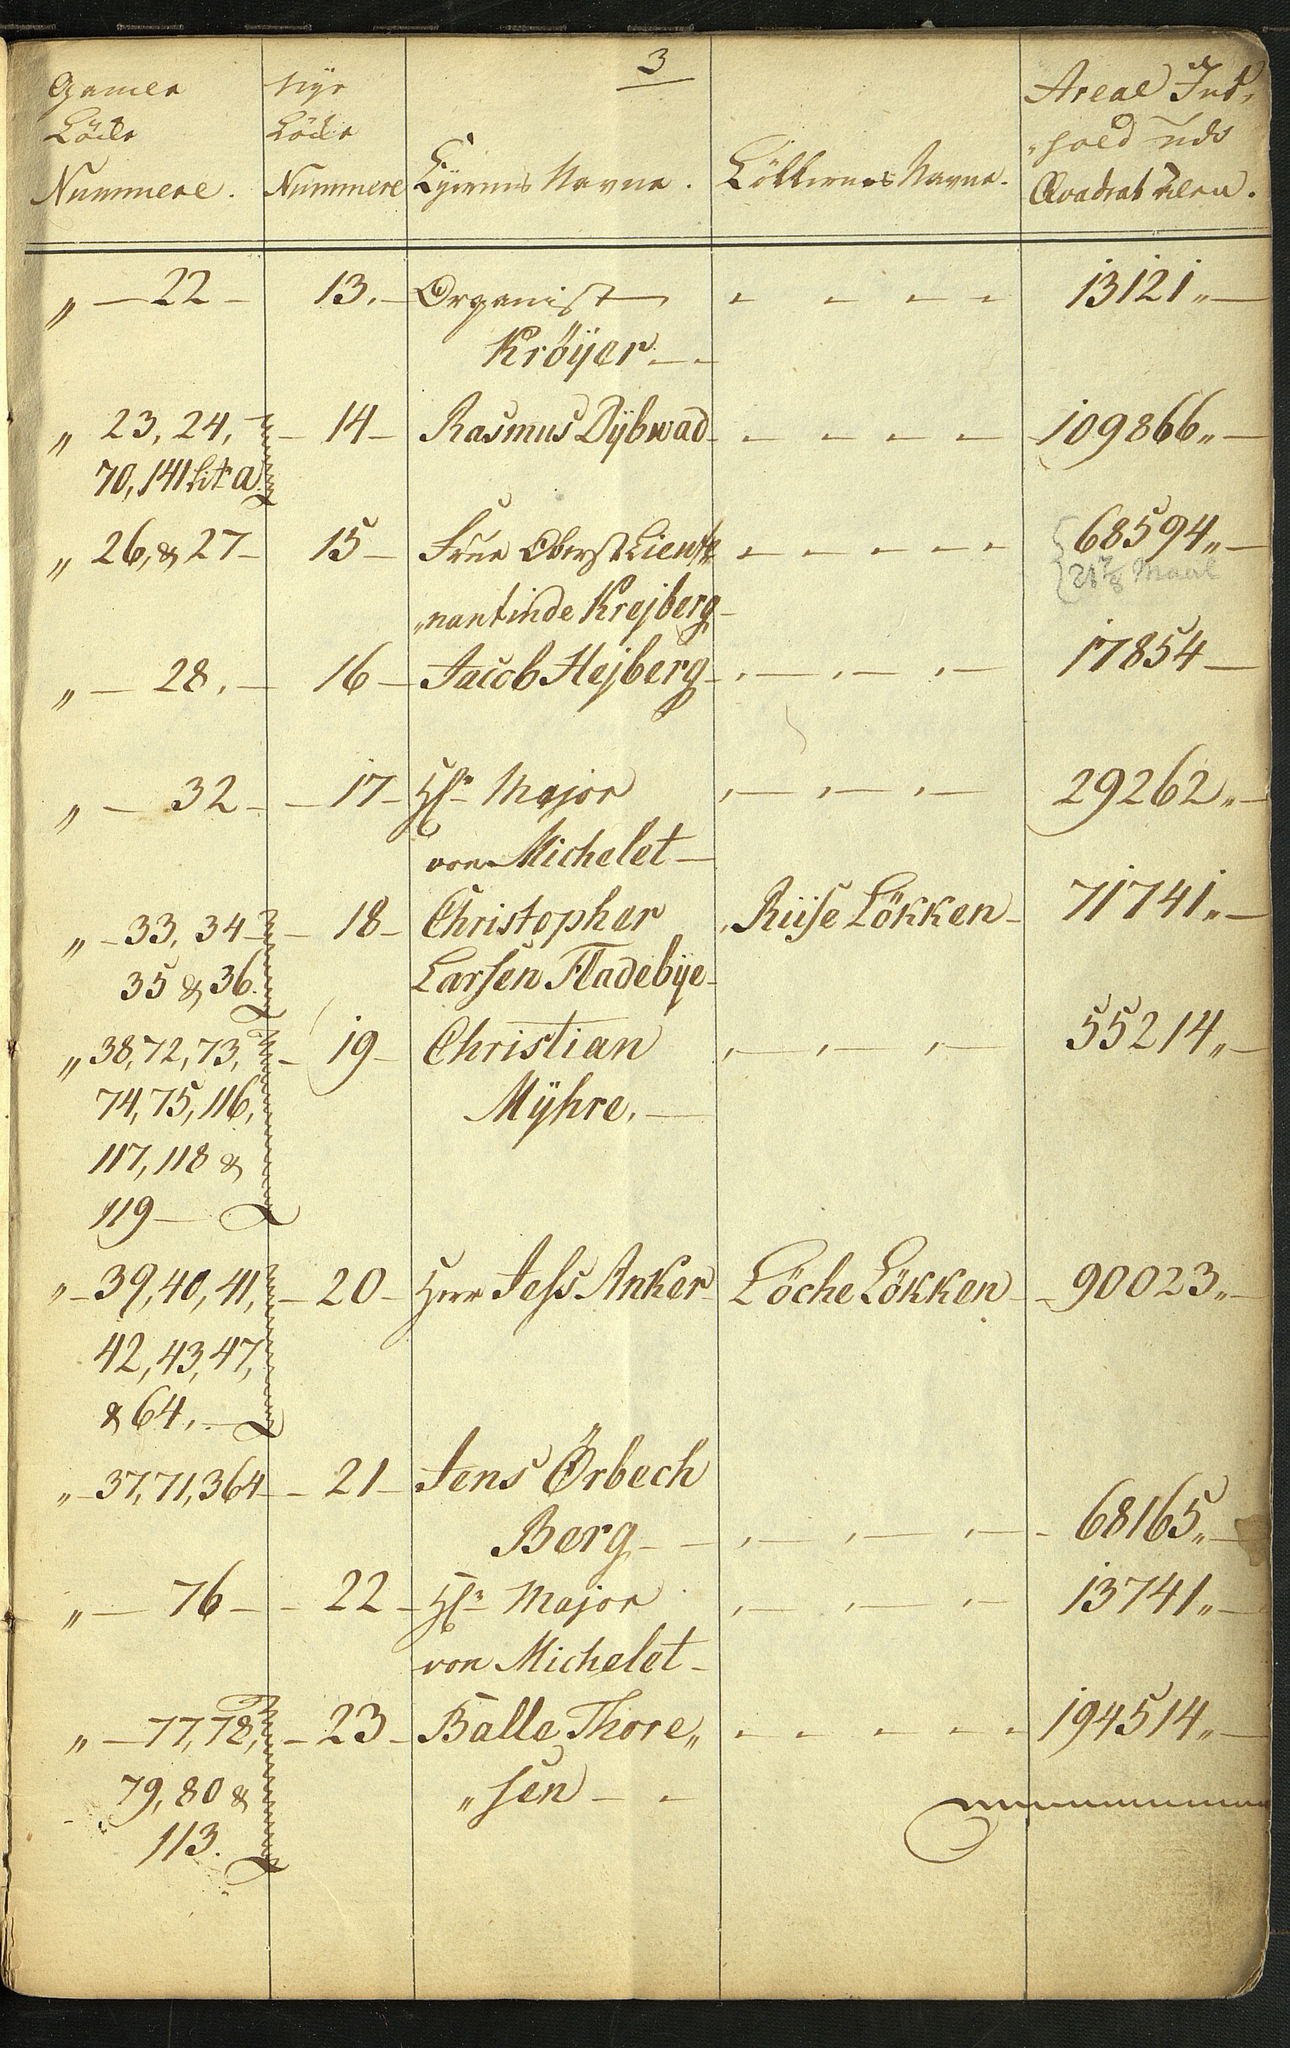 3
Gamle Löcke Nummere. Nye Löcke Nummere Eyernes Navne. Lökkernes Navne. Areal Ind„
„hold udi
Qvadrat Alen.
„ — 22 — 13. — Organist — - - - - 13121„ —
Kröÿer — -
„ 23, 24, — 14 — Rasmus Dÿbwad - - - - - 109866„ —
70, 141 Lit a.
„ 26, & 27 — 15 — Frue Oberst Lieut„ - - - - - 68594„ —
„nantinde Krejberg — Maal
„ — 28, — 16 — Jacob Hejberg - - - - 17854 —
„ — 32 — — 17 — Hr Major - - - 29262„ —
von Michelet —
„ — 33, 34 — — 18 — Christopher Riise Lökken — 71741„ —
35 & 36. Larsen Fladebÿe —
„ 38, 72, 73, — 19 — Christian - - - 55214„ —
74, 75, 116, Mÿhre. —
117, 118 &
119 —
„ — 39, 40, 41, — 20 — Herr Jess Anker Löche Lökken — 90023„ —
42, 43, 47,
& 64, . —
„ — 37, 71, 364 — 21 — Jens Örbech
Berg — - - - - 68165„ —
„ — 76 — — 22 — Hr Major - - - 13741„ —
von Michelet —
„ — 77, 78, — 23 — Balle Thore„ - - - - - 194514„ —
79, 80 & „sen — -
113.